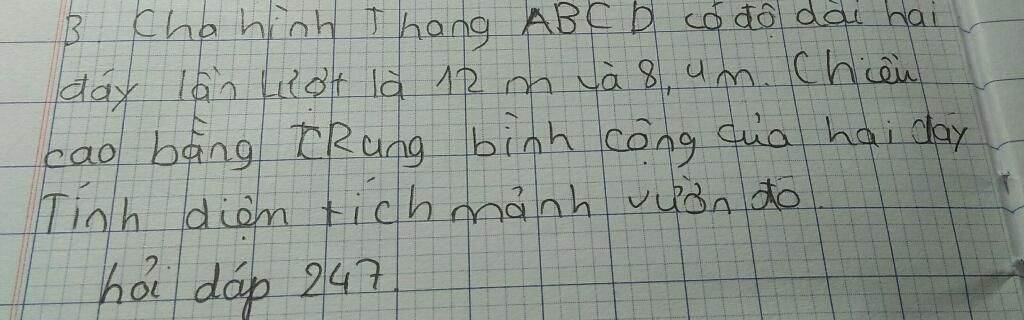 3 Cho hình Thang ABCD có độ dài hai
đáy lần lượt là 12 m và 8,4m. Chiều
cao bằng tRung bình cộng của hai đáy
Tính diện tích mảnh vườn đó.
hỏi đáp 247